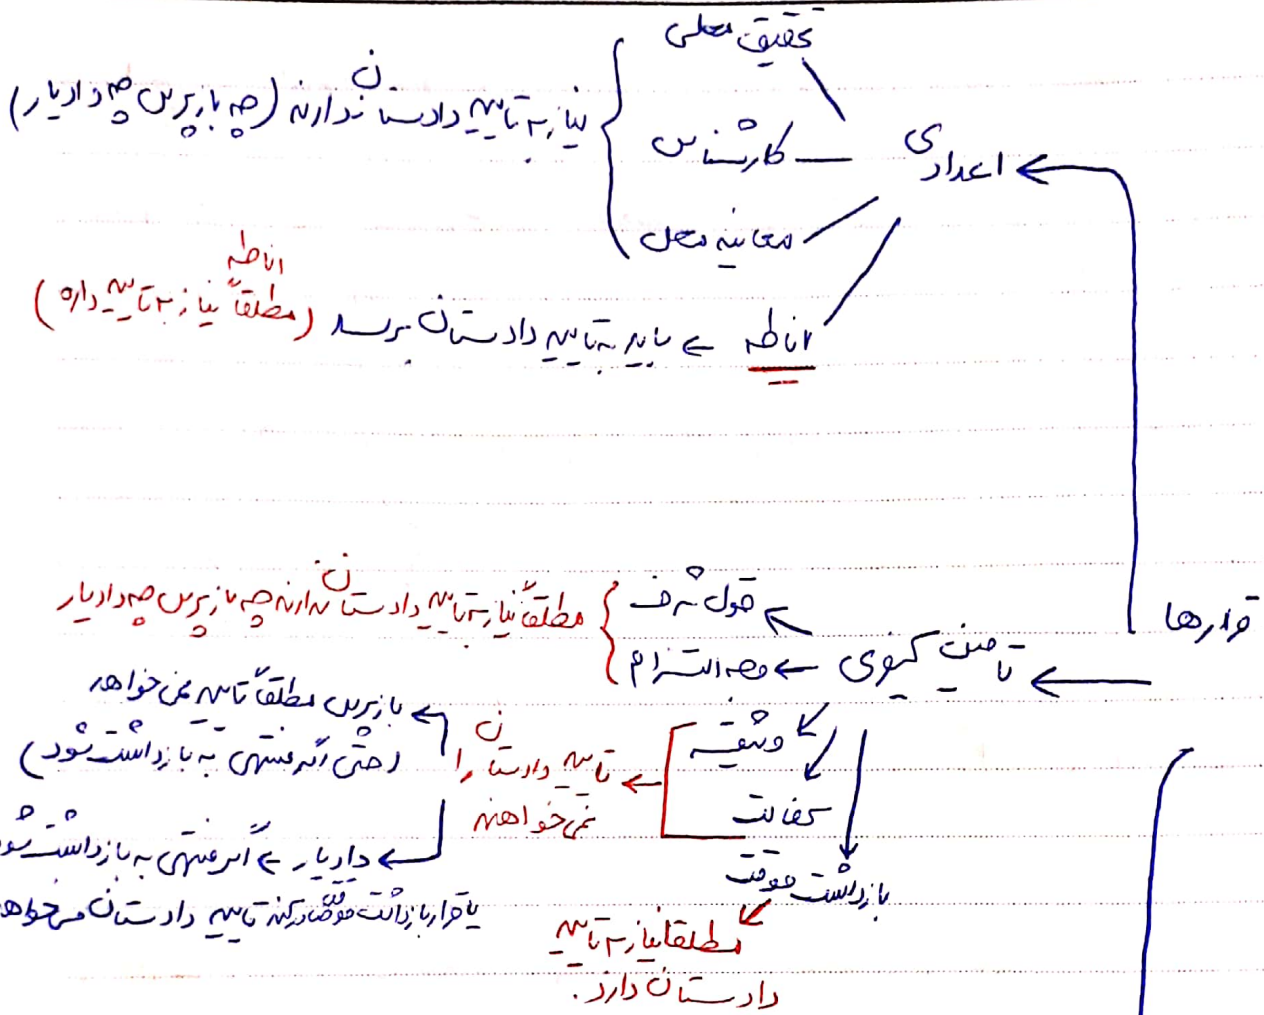 قرارها
اعدادی
تحقیق محلی
کارشناسی
معاینه محل
نیاز به تایید دادستان ندارند (چه بازپرس چه دادیار)
اناطه ← باید به تایید دادستان برسد (مطلقاً نیاز به تایید داره)
اناطه
تامین کیفری
قول شرف
وجه التزام
مطلقاً نیاز به تایید دادستان ندارند چه بازپرس چه دادیار
وثیقه
کفالت
تایید دادستان را
نمی‌خواهند
بازپرس مطلقاً تایید نمی‌خواهد
(حتی اگر منتهی به بازداشت شود)
دادیار ← اگر منتهی به بازداشت شود
یا قرار بازداشت موقت صادر کند تایید دادستان می‌خواهد
بازداشت موقت
مطلقا نیاز به تایید
دادستان دارد.